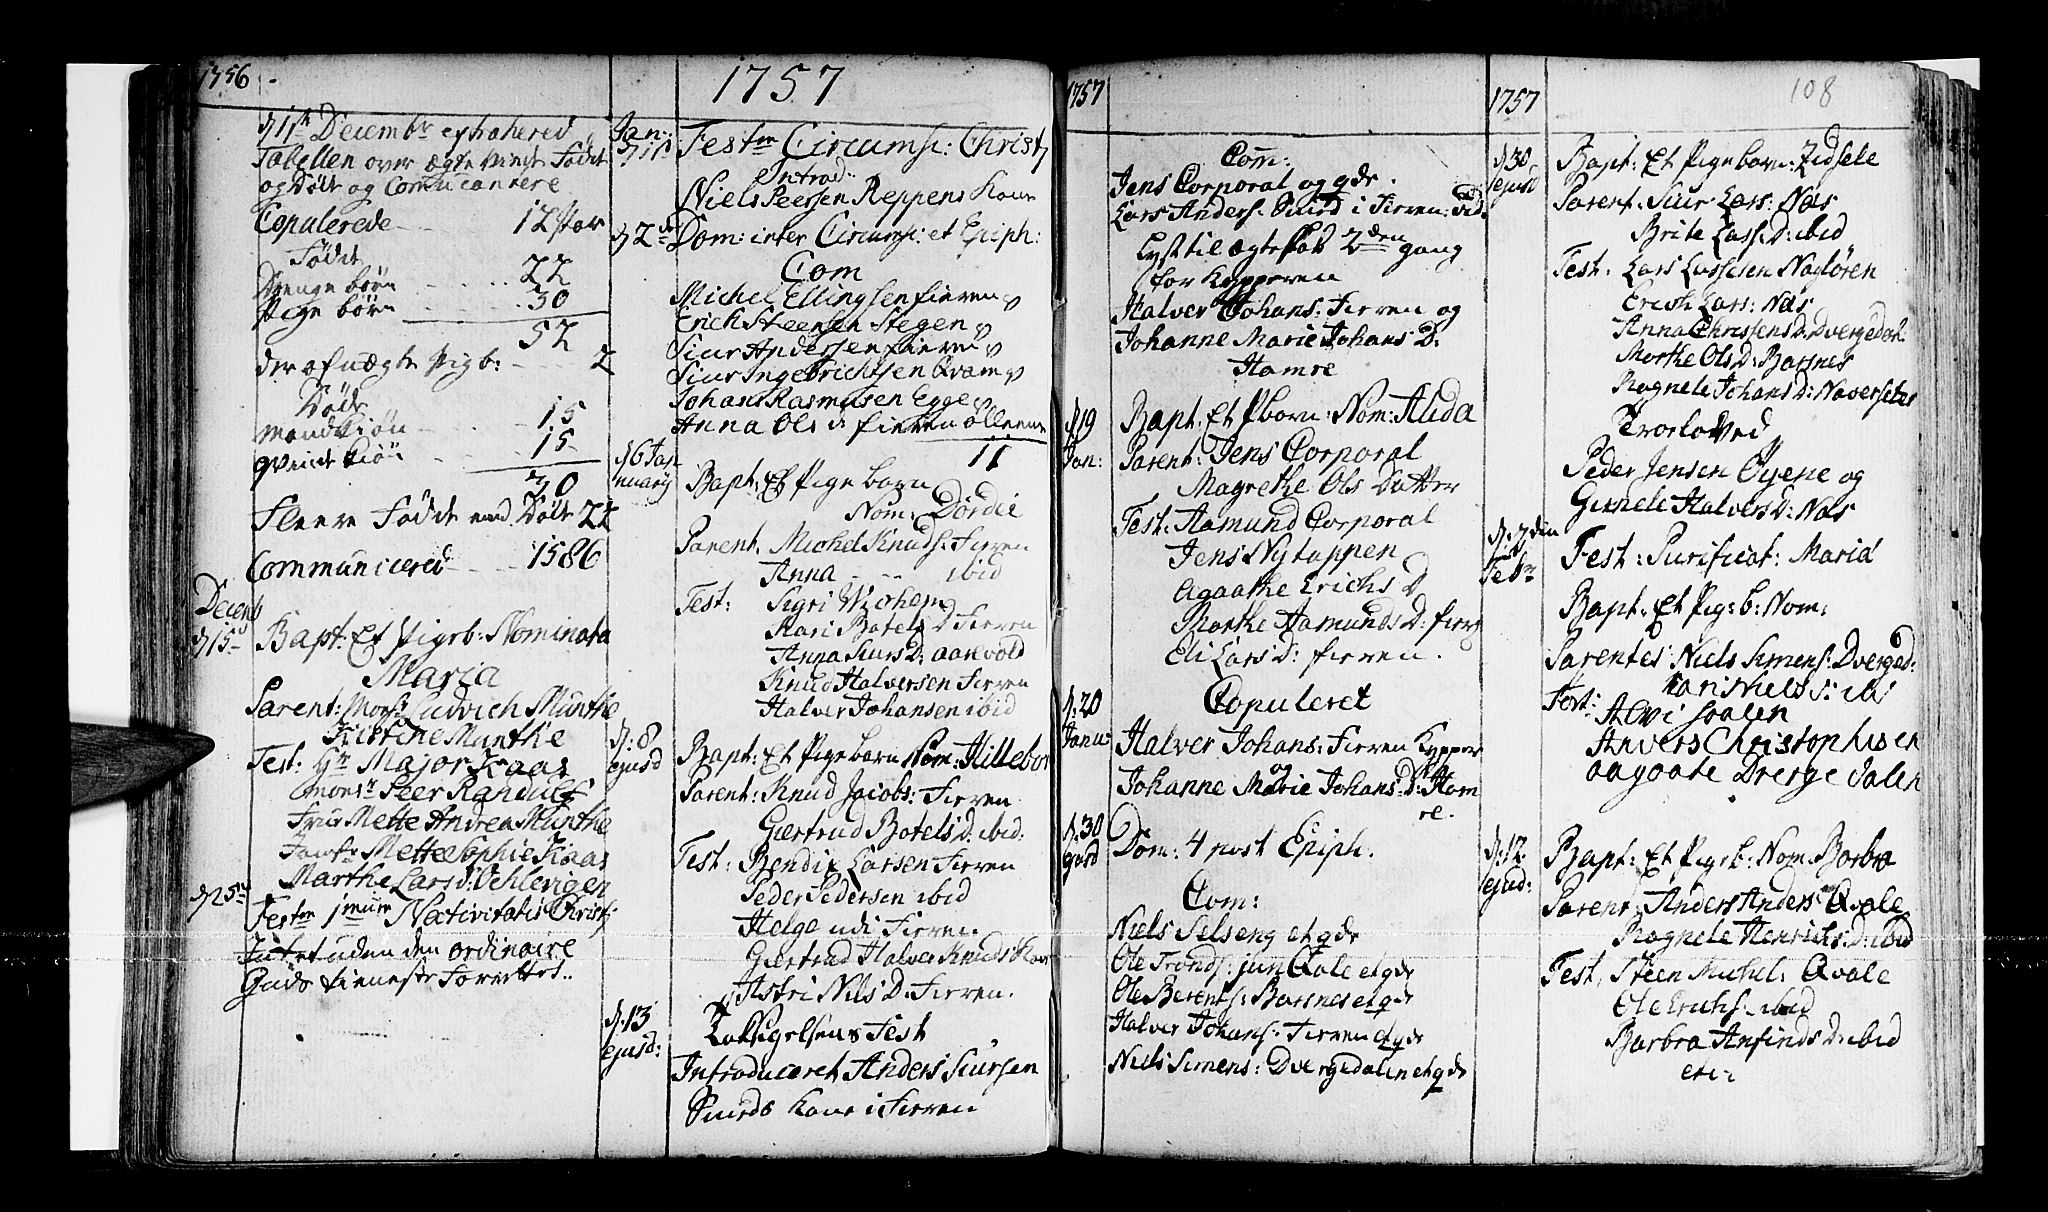 1756
d 11te Decembr extrahered
Tabellen over ægte viede Født
og Død og Comunicantere
Copulerede - - 12 par
Født
Drenge børn - - - 22
Pige børn - - - 30
52
der af uægte Pigb: - - 2
Døde
mandkiøn - - - 15
qvindekiøn - - - 15
30
Fleere Født end Død 22
Communicered - - - 1586
Decemb
d 15
Bapt: Et Pigeb: Nominata
Maria
Parent: Monsr Ludvich Munthe
Kistine Munthe
Test: Hr Major Kaas
Monsr Peer Randulf
Frue Mette Andrea Munthe
Mette Sophie Kaas
Marthe Lars D:
d 25
Festm 1mum Nativitatis Christi
Intet uden den ordinaire
Guds tieneste Forrettet..
1757
Jan:
d 1
Festm Circumsi: Christj
Introd:
Niels Peersen Reppens Kone
d 2den
Dom: inter Circumsi: et Epiph:
Com
Michel Ellingsen Fieren
Erich Steensen Stegen
Siur Andersen Fieren
Siur Ingebrichtsen Qvam
Johans Rasmusen Egge
Anna Ols D Fieren
11
d 6 Januarij
Bapt: Et Pige barn
Nom: Dordei
Parent. Michel Knuds: Fierren
Anna - - - ibid
Test: Sigri
Kari Botels D Fierren
Anna Siurs D: Aarevold
Knud Halversen Fierren
Halver Johansen ibid
d: 8
ejusd
Bapt: Et Pige barn Nom: Hillebor
Parent: Knud Jacobs: Fierren
Giertrud Botels D. ibid:
Test: Bendix Larsen Fierren
Peder Pedersen ibid
Helge udi Fierren
Giertrud Halver Knuds Kone
Astri Niels D. Fierren.
d: 13
ejusd:
Taksigelsens Fest
Introduceret Anders Siursen
Smeds Kone i Fierren
1757
Com:
Jens Corporal og qde.
Lars Anders: Smed i Fierren:
Lyst til ægteskab 2den gang
for Kypperen
Halver Johans: Fierren og
Johanne Marie Johans D:
Hamre
d 19
Jan:
Bapt: Et P barn: Nom: Alida
Parent: Jens Corporal
Magrethe Ols Datter
Test: Aamund Corporal
Jens Nytappen
Agaathe Erichs D
Marthe Aamunds D: Fierr
Eli Lars D: Fierren.
d: 20
Janu
Copuleret
Halver Johans: Fierren Kypper
og
Johanne Marie Johans: D: Ham
re.
d: 30
ejusd
Dom: 4 post Epiph.
Com:
Niels Selseng et qde
Ole Tronds: jun Qvale et qde
Ole Berents: Barsnes et qde
Halver Johans: Fierren et qde
Niels Simens: Dvergedalen et qde
1757
108
d: 30
ejusd
Bapt: Et Pige barn: Zidsele
Parent. Siur Lars: Næs
Brite Lass: D: ibid
Test. Lars Lassesen Nagløren
Erich Lars: Næs
Anna Chrissens D: Dvergedal
Marthe Ols D: Barsnes
Ragnele Johans D: Naversetes
Trorloved
Peder Jensen Øyene og
Gunele Halvers D: Næs
d. 2den
Febr
Fest: Purificat: Mariæ
Bapt: Et Pig: b: Nom:
Parentes Niels Simens: Dvergd:
Kari Niels D: ibid
Test:
Anders Christophersen
Aagaate Dvergedalen
d: 12
ejusd:
Bapt: Et Pigeb: Nom: Barbra
Parent, Anders Anders: Qvale
Ragnele Henrichs: D: ibid
Test, Steen Michel: Qvale
Ole Erichs: ibid
Barbra Anfinds D: ibid
etc